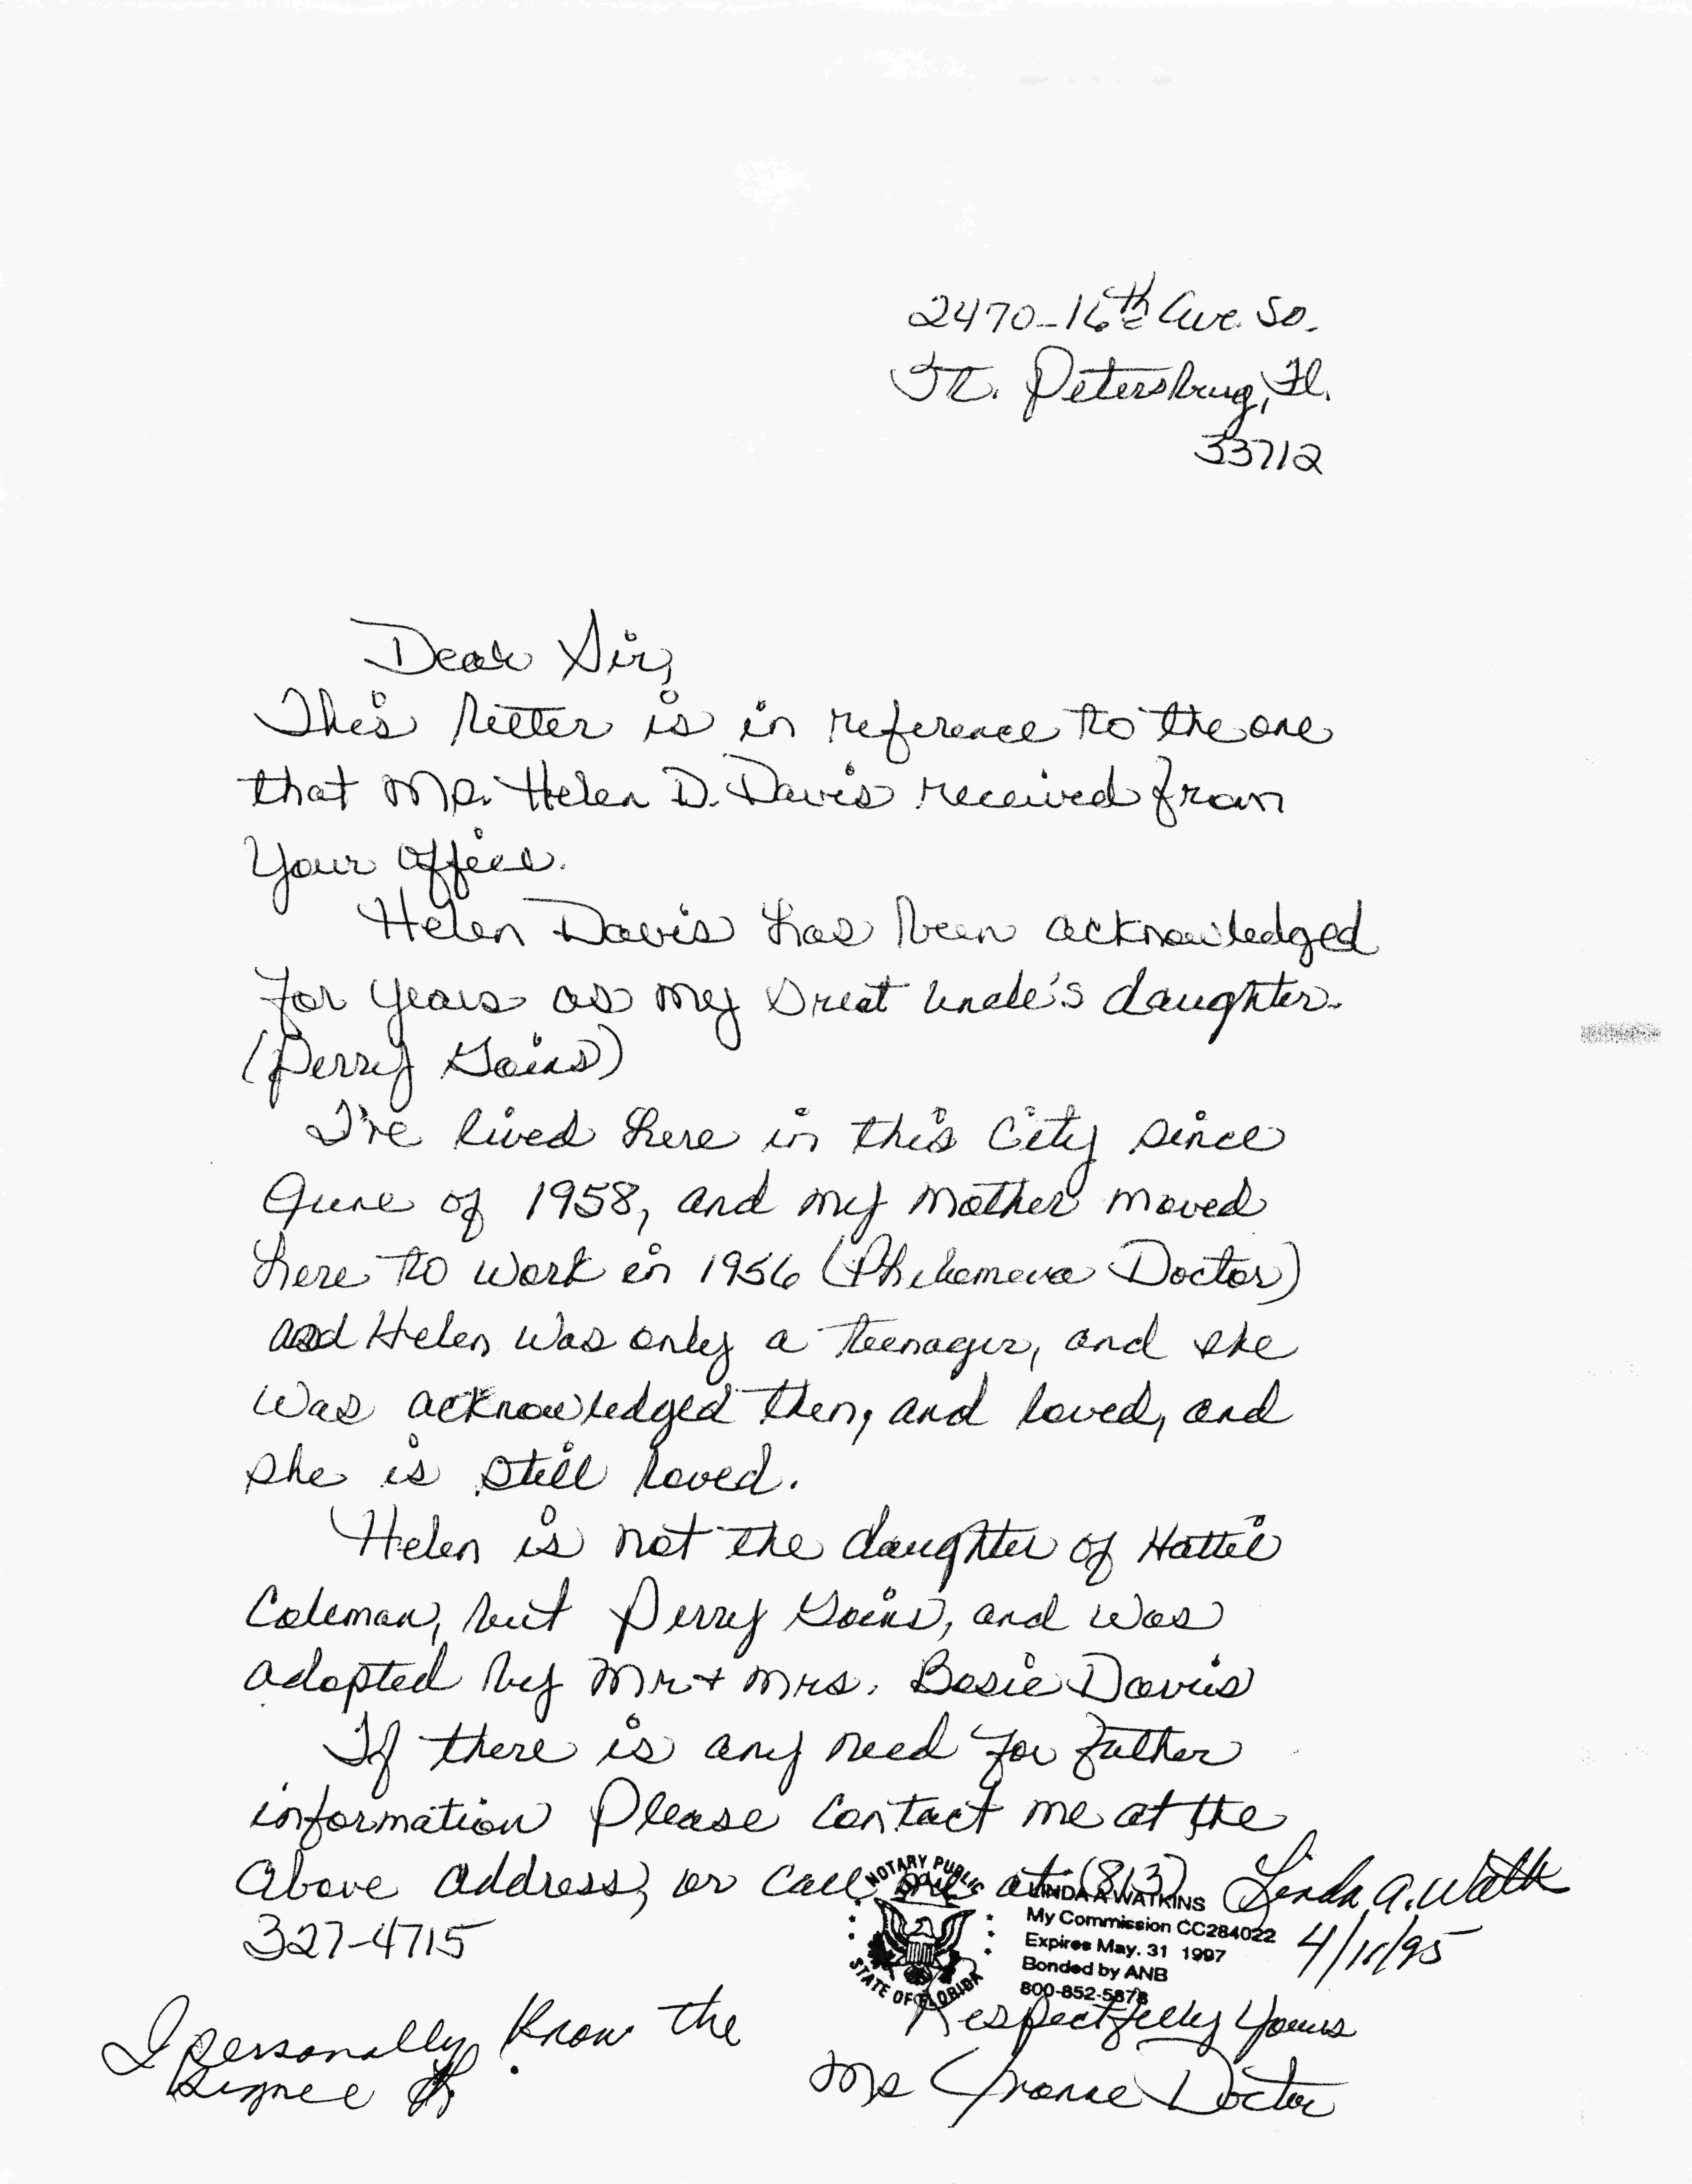 2470-16th Ave. So.
St. Petersburg, Fl.
33712
Dear Sir,
This letter is in reference to the one
that Ms. Helen D. Davis received from
your office.
Helen Davis has been acknowledged
for years as my Great Uncle's daughter.
(Perry Goins)
I've lived here in this City since
June of 1958, and my Mother moved
here to work in 1956 (Philomena Doctor)
and Helen was only a teenager, and she
was acknowledged then, and loved, and
she is still loved.
Helen is not the daughter of Hattie
Coleman, but Perry Goins, and was
adopted by Mr + Mrs. Bosie Davis
If there is any need for futher
information Please Contact me at the
above address, or call me at (813)
327-4715
NOTARY PUBLIC
STATE OF FLORIDA
LINDA A WATKINS
My Commission CC284022
Expires May. 31 1997
Bonded by ANB
800-852-5878
Linda A. Watk
4/ /95
Respectfully Yours
Ms Yvonne Doctor
I personally know the
signee